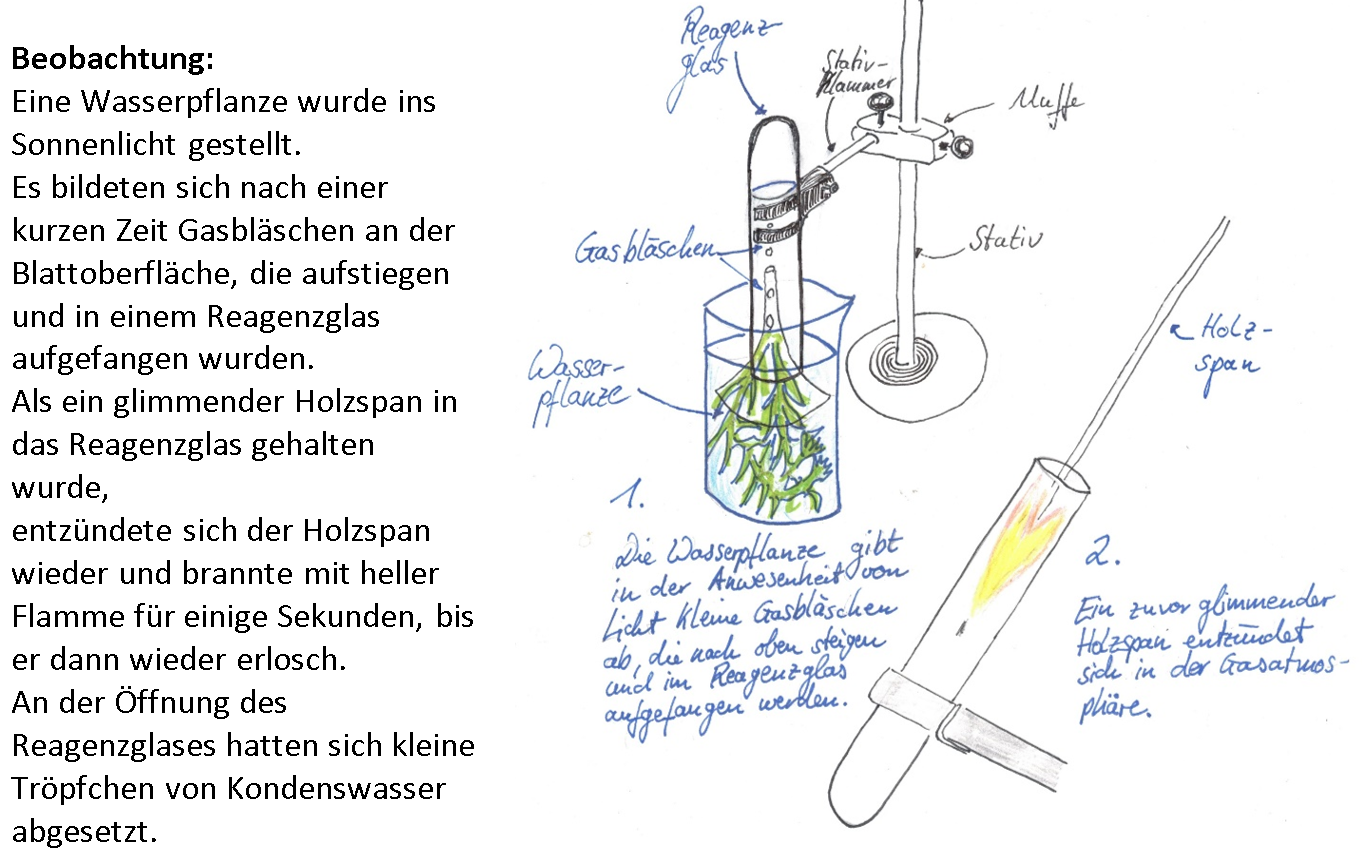 Beobachtung:
Eine Wasserpflanze wurde ins
Sonnenlicht gestellt.
Es bildeten sich nach einer
kurzen Zeit Gasbläschen an der
Blattoberfläche, die aufstiegen
und in einem Reagenzglas
aufgefangen wurden.
Als ein glimmender Holzspan in
das Reagenzglas gehalten
wurde,
entzündete sich der Holzspan
wieder und brannte mit heller
Flamme für einige Sekunden, bis
er dann wieder erlosch.
An der Öffnung des
Reagenzglases hatten sich kleine
Tröpfchen von Kondenswasser
abgesetzt.
Reagenz
glas
Stativ-
klammer
Muffe
Gasbläschen
Stativ
Wasser-
pflanze
Holz-
span
1.
Die Wasserpflanze gibt
in der Anwesenheit von
Licht kleine Gasbläschen
ab, die nach oben steigen
und im Reagenzglas
aufgefangen werden.
2.
Ein zuvor glimmender
Holzspan entzündet
sich in der Gasatmos-
phäre.